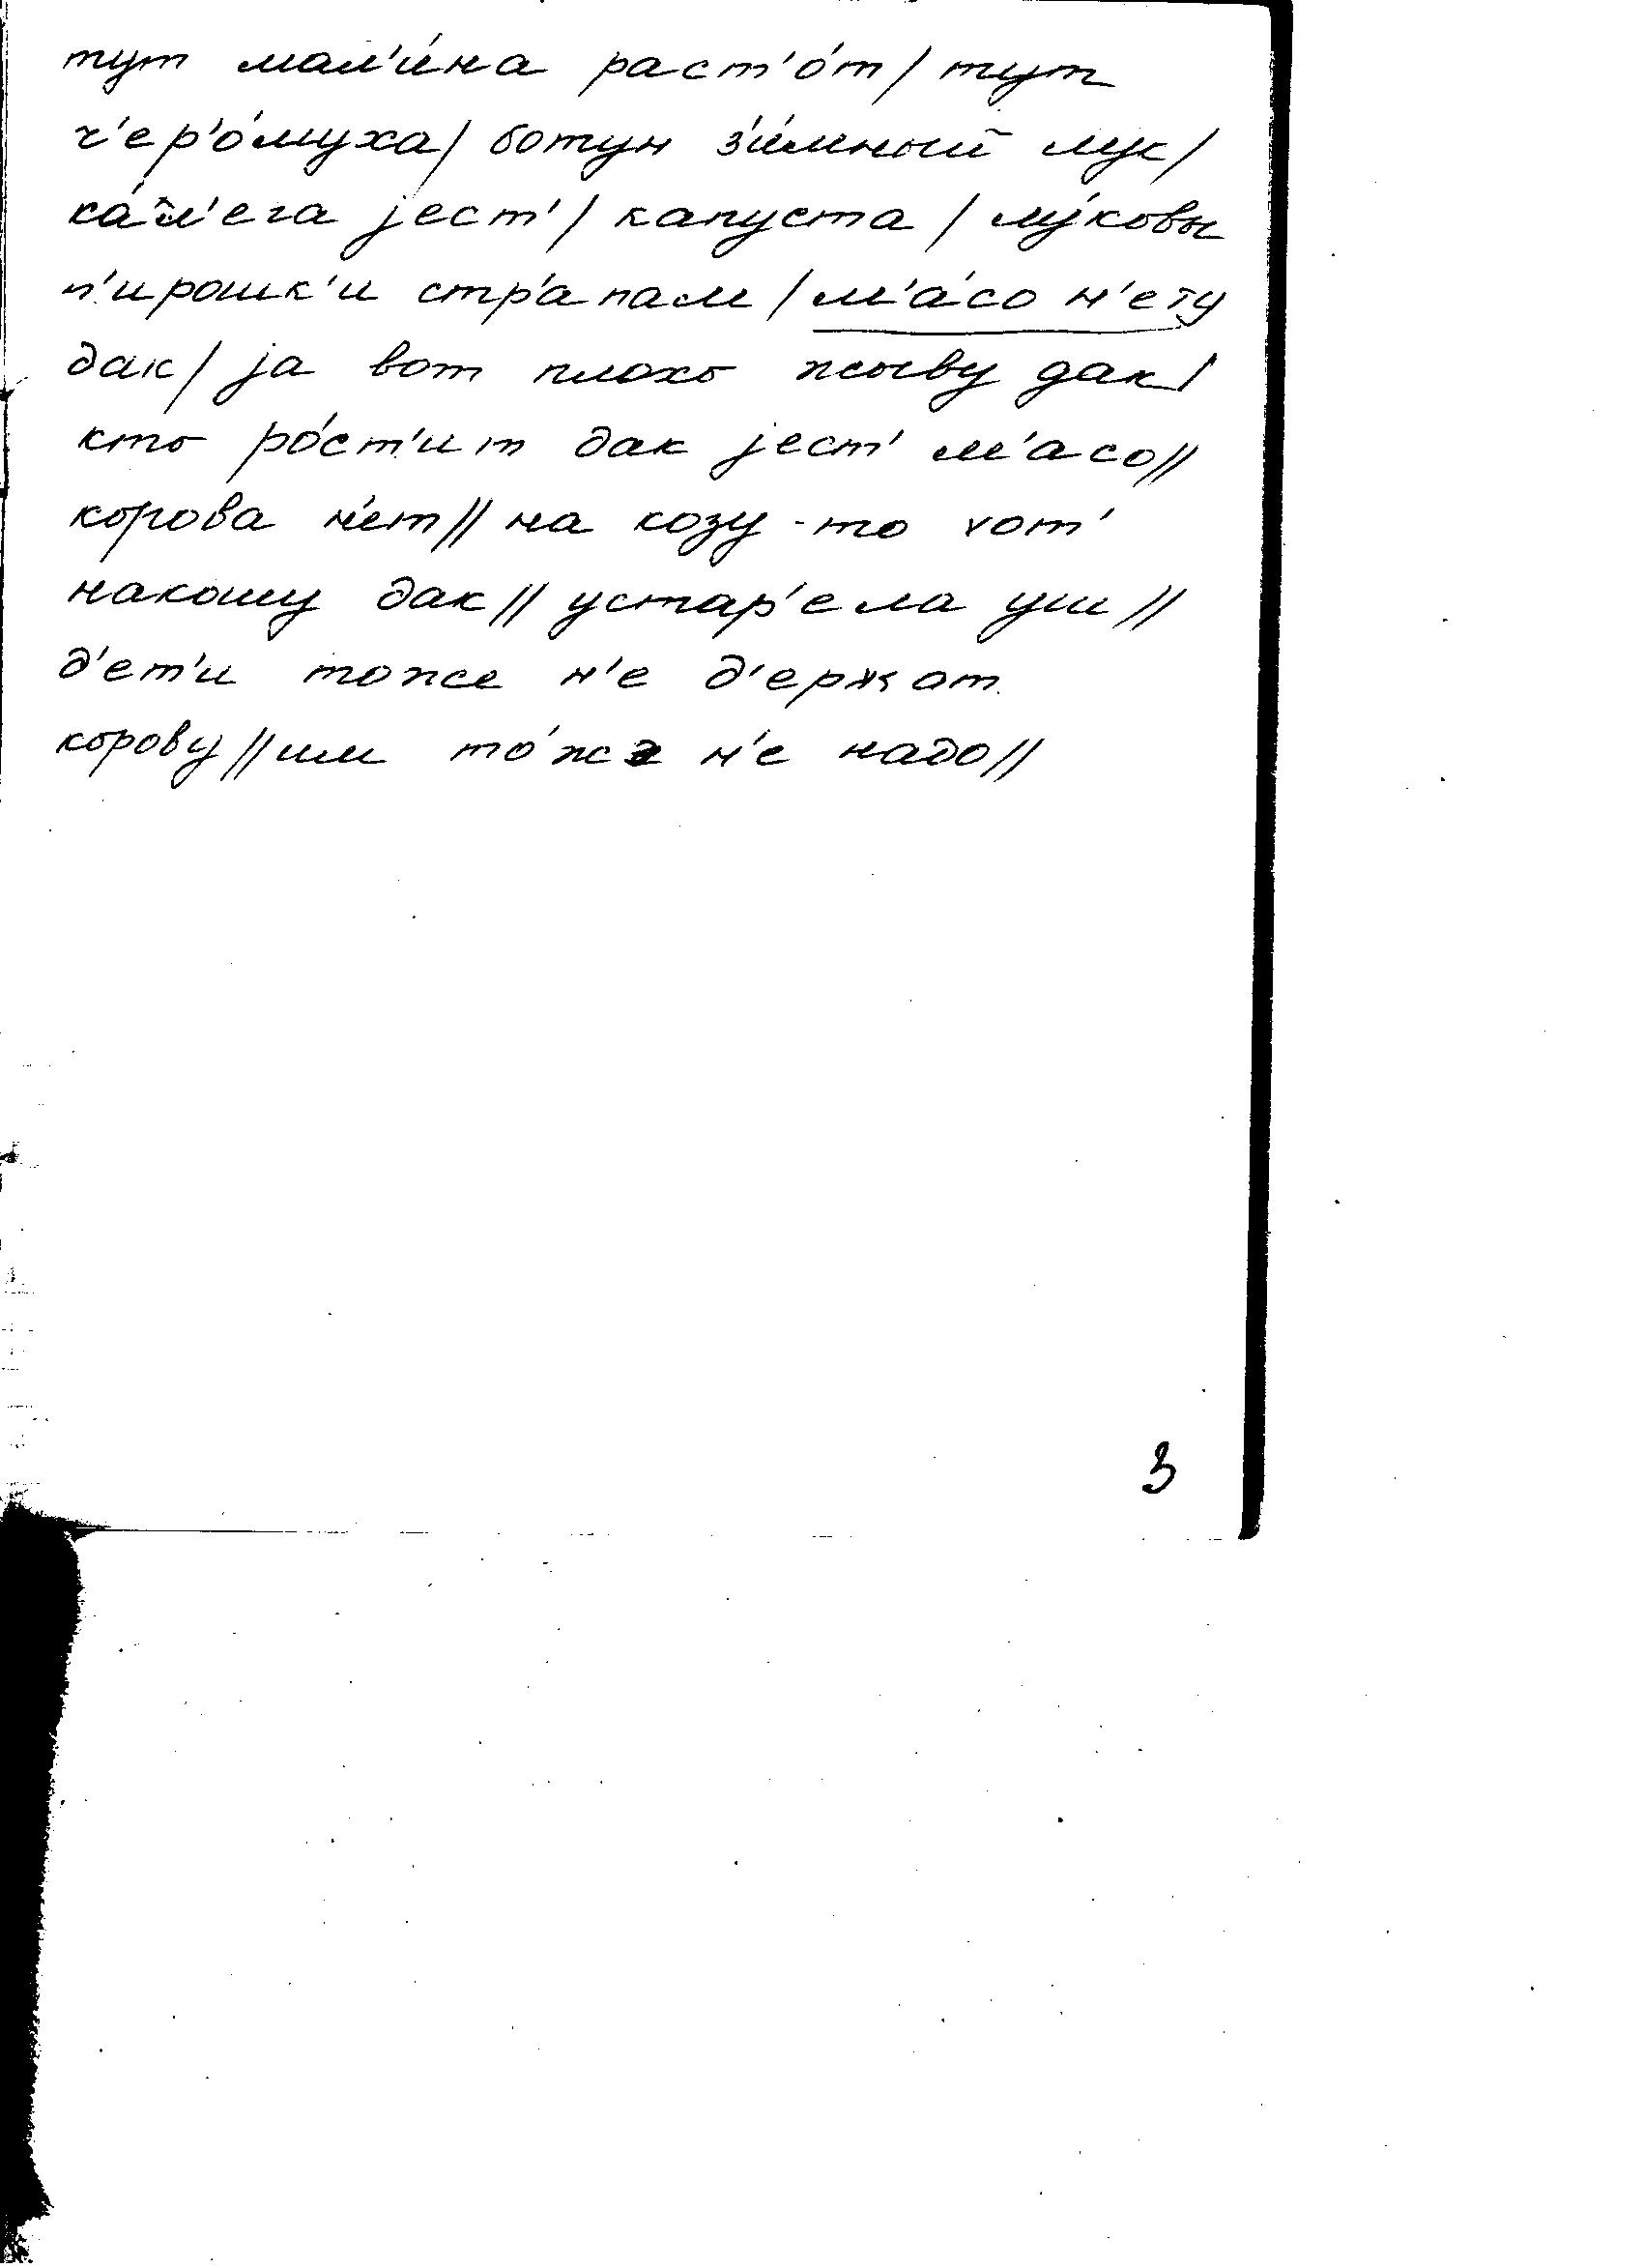 тут мал'и́на раст'о́т/ тут
ч'ер'о́муха/ ботун з'и́мный лук/
ка́л'ега jест'/ капуста / лу́ковы
п'ирошк'и стр'апам /м'а́со н'ету
дак/ ja вот плохо жыву дак/
кто ро́ст'ит дак jест' м'асо//
корова н'ет// на козу-то хот'
накошу дак// устар'ела уш //
д'ет'и тоже н'е д'ержат
корову//им то́жэ н'е надо//
3